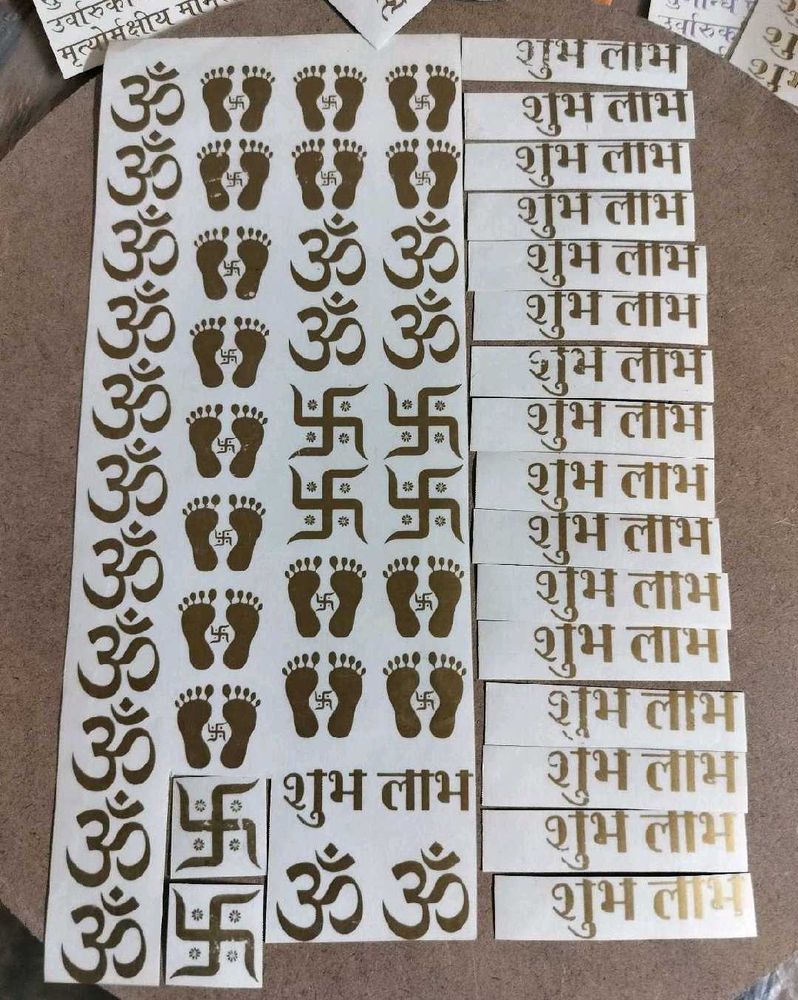 उर्वारुक
मृत्योर्मक्षीय
उर्वारुक
ॐ
ॐ
ॐ
ॐ
ॐ
ॐ
ॐ
ॐ
ॐ
ॐ
ॐ
ॐ ॐ
ॐ ॐ
शुभ लाभ
ॐ ॐ
शुभ लाभ
शुभ लाभ
शुभ लाभ
शुभ लाभ
शुभ लाभ
शुभ लाभ
शुभ लाभ
शुभ लाभ
शुभ लाभ
शुभ लाभ
शुभ लाभ
शुभ लाभ
शुभ लाभ
शुभ लाभ
शुभ लाभ
शुभ लाभ